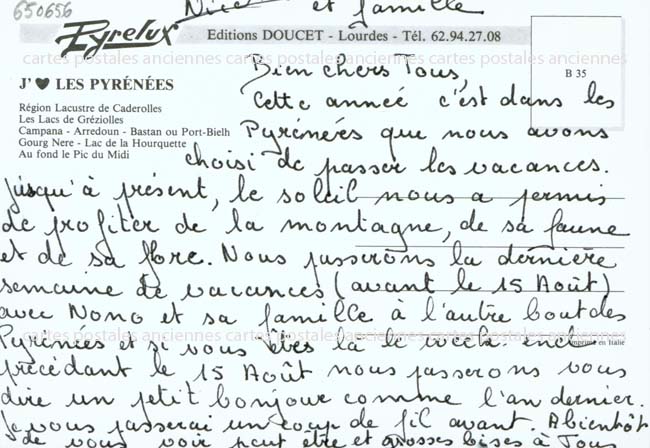 et famille
Pyrelux
Editions DOUCET - Lourdes - Tél. 62.94.27.08
650656
cartes postales anciennes cartes postales anciennes cartes postales anciennes
B 35
J'♥ LES PYRÉNÉES
Région Lacustre de Caderolles
Les Lacs de Gréziolles
Campana - Arredoun - Bastan ou Port-Bielh
Gourg Nere - Lac de la Hourquette
Au fond le Pic du Midi
Bien chers Tous,
Cette année c'est dans les
Pyrénées que nous avons
choisi de passer les vacances.
Jusqu'à présent, le soleil nous a permis
de profiter de la montagne, de sa faune
et de sa flore. Nous passerons la dernière
semaine de vacances (avant le 15 Août)
avec Nono et sa famille à l'autre bout des
cartes postales anciennes cartes postales anciennes cartes postales anciennes
Pyrénées et si vous êtes là le week-end
Imprimé en Italie
précédant le 15 Août nous passerons vous
dire un petit bonjour comme l'an dernier.
Je vous passerai un coup de fil avant. A bientôt
de vous voir peut être et grosses bises à Tous